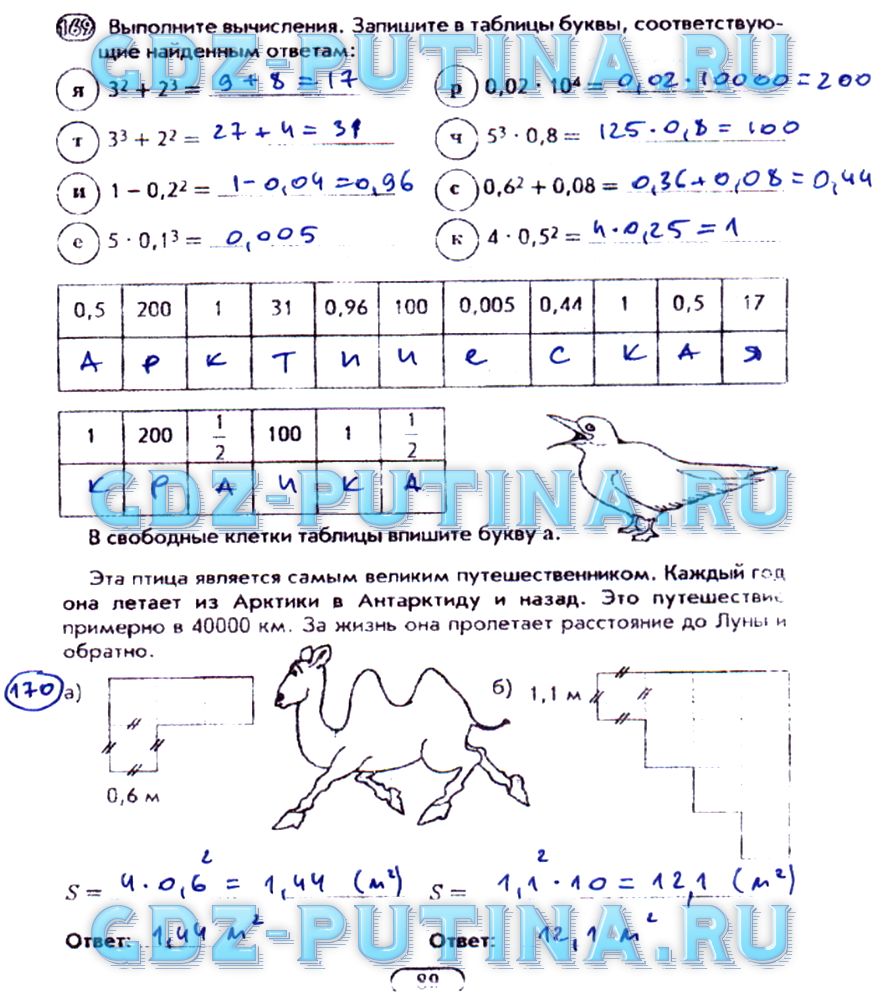 169 Выполните вычисления. Запишите в таблицы буквы, соответствую-
GDZ-PUTINA.RU
щие найденным ответам:
я 3² + 2³ = 9 + 8 = 17
р 0,02 · 10⁴ = 0,02 · 10000 = 200
т 3³ + 2² = 27 + 4 = 31
ч 5³ · 0,8 = 125 · 0,8 = 100
и 1 – 0,2² = 1 - 0,04 = 0,96
с 0,6² + 0,08 = 0,36 + 0,08 = 0,44
е 5 · 0,1³ = 0,005
к 4 · 0,5² = 4 · 0,25 = 1
0,5 200 1 31 0,96 100 0,005 0,44 1 0,5 17
А Р К Т И Ч е С К А Я
1 200 1/2 100 1 1/2
К Р А Ч К А
GDZ-PUTINA.RU
В свободные клетки таблицы впишите букву а.
Эта птица является самым великим путешественником. Каждый год
она летает из Арктики в Антарктиду и назад. Это путешествие
примерно в 40000 км. За жизнь она пролетает расстояние до Луны и
обратно.
170 а)
б) 1,1 м
0,6 м
S = 4 · 0,6² = 1,44 (м²)
S = 1,1² · 10 = 12,1 (м²)
GDZ-PUTINA.RU
Ответ: 1,44 м²
Ответ: 12,1 м²